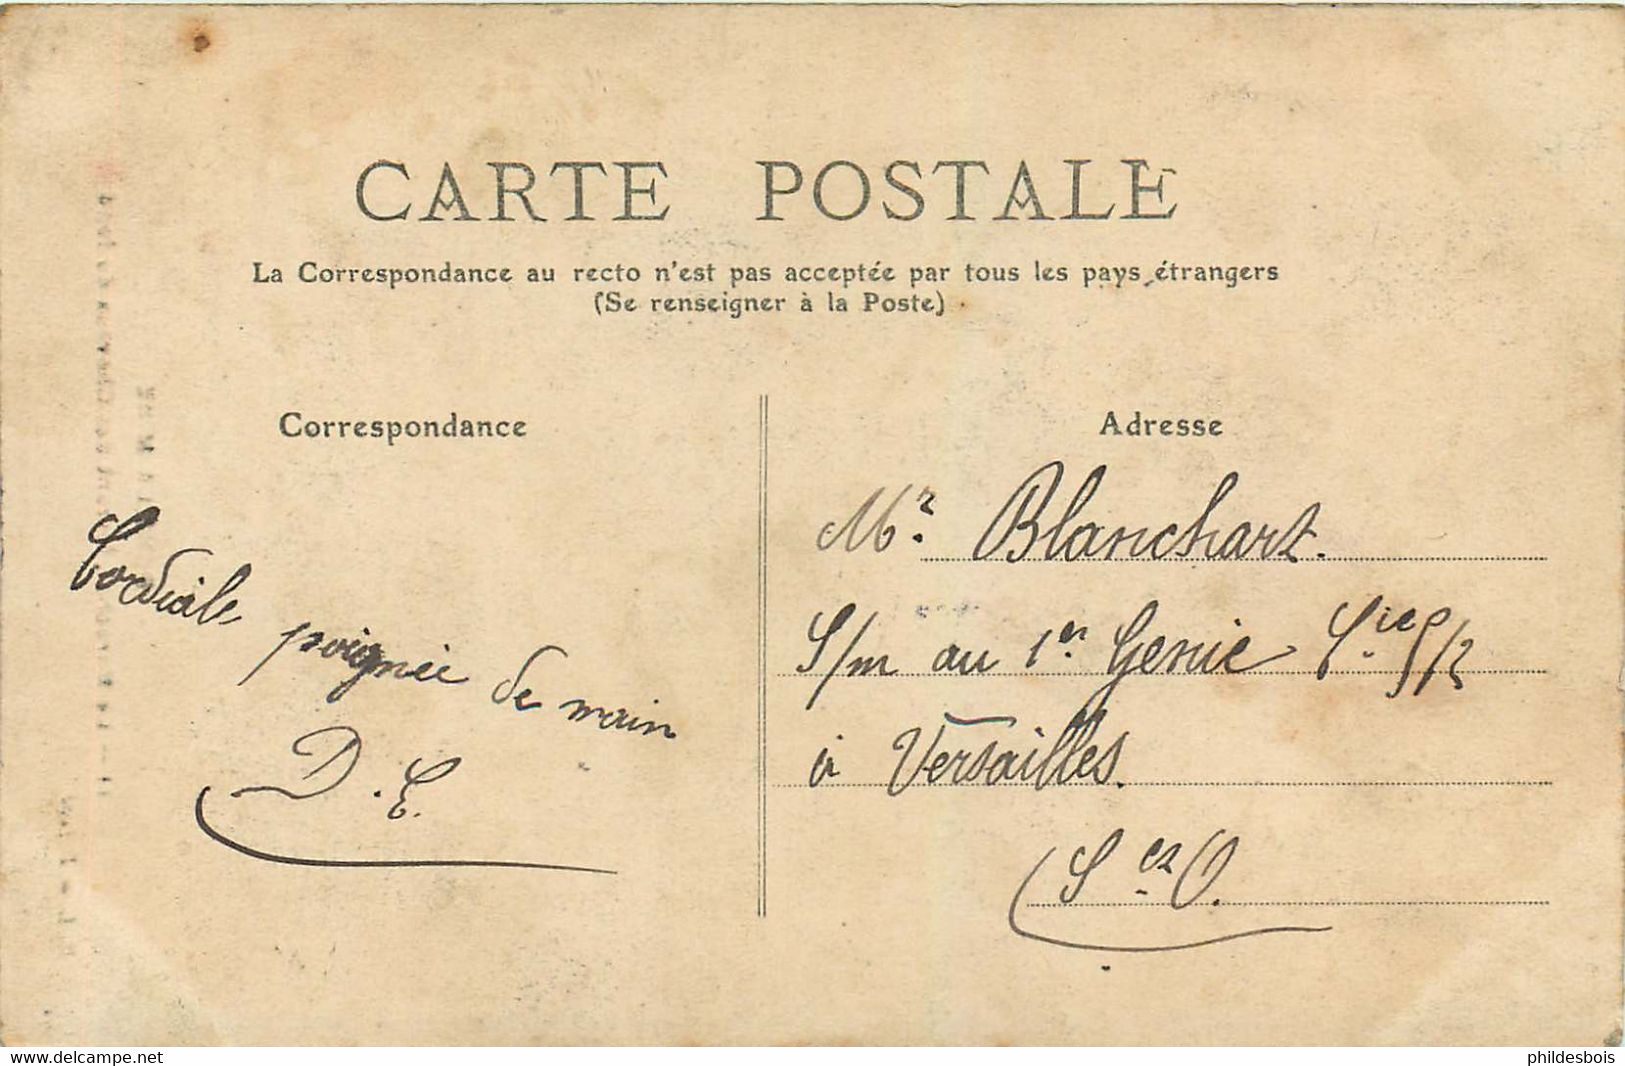 CARTE POSTALE
La Correspondance au recto n'est pas acceptée par tous les pays étrangers
(Se renseigner à la Poste)
Correspondance
Cordiale
poignée de main
D. E.
Adresse
Mr. Blanchart.
S/m au 1er Genie
à Versailles.
S et O.
www.delcampe.net
phildesbois